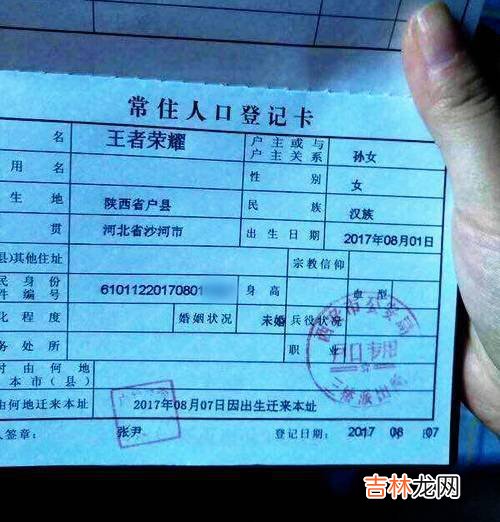 常住人口登记卡
名 王者荣耀 户主或与户主关系 孙女
用名 性别 女
生地 陕西省户县 民族 汉族
贯 河北省沙河市 出生日期 2017年08月01日
县)其他住址 宗教信仰
民身份件编号 61011220170801 身高 血型
化程度 婚姻状况 未婚 兵役状况
务处所 职业
时由何地本市(县)
由何地迁来本址 2017年08月07日因出生迁来本址
人签章: 张尹 登记日期: 2017 08 07
户口专用
吉林龙网